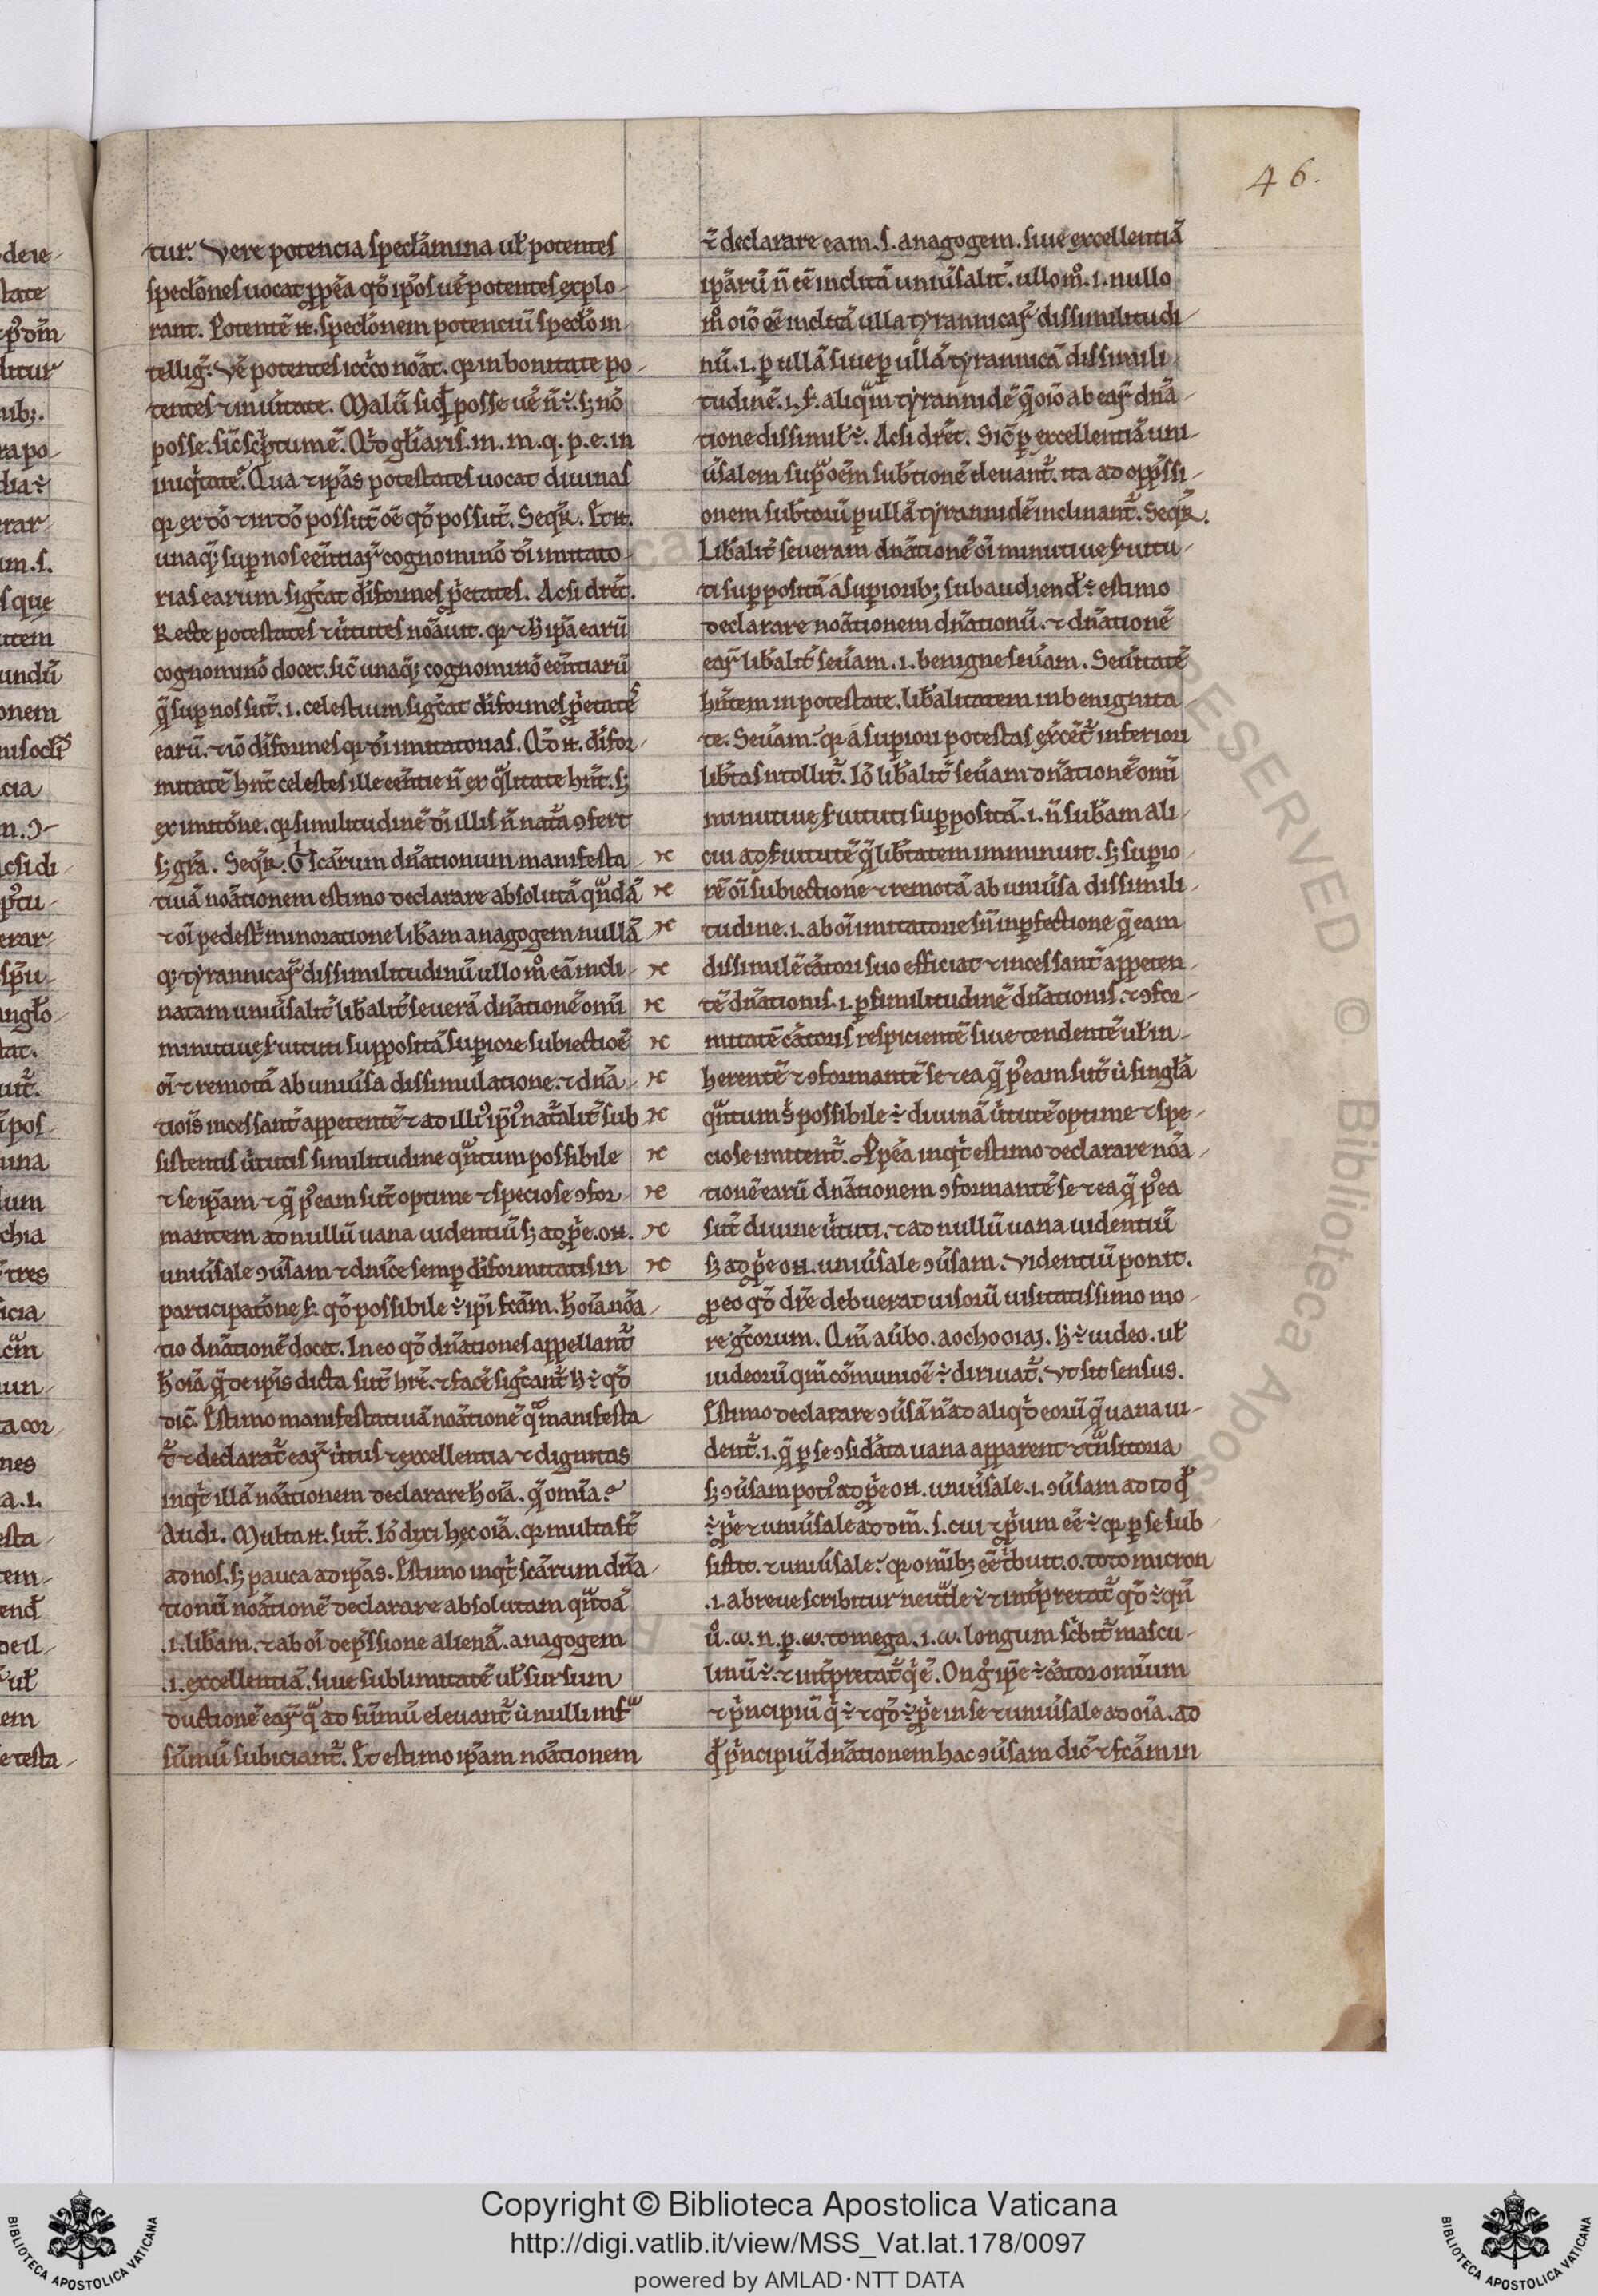 46.
tur. Vere potencia spectãmina uł potentes
specłones uocat ꝓpẽa qđ ip̃os uẽ potentes explo-
rant. Potentẽ n. specłonem potenciũ specło in-
tellig̃. Vẽ potentes iccõ noãt. qr in bonitate po-
tentes ⁊ in uĩtate. Malũ siqͥd posse uẽ ñ ẽ. sꝫ nõ
posse. sic̃ scͥptum ẽ. Qͥd gl̃iaris. in. m. q. p. e. in
iniqͥtatẽ. Qua ⁊ ip̃as potestates uocat diuinas
qr ex dõ ⁊ in dõ possũt oẽ qđ possũt. Seqr̃. Et n.
unaqꝫ sup nos eẽntiaꝝ cognominõ dĩ imitato-
rias earum sigc̃at dĩformes ꝓp̃etates. Ac si drẽt.
Recte potestates ⁊ ũtutes noãuit. qr ⁊ h̃ ip̃a earũ
cognominõ docet. sic̃ unaqꝫ cognominõ eẽntiarũ
q̃ sup nos sũt. i. celestium sigc̃at dĩformes ꝓp̃etates
earũ. ⁊ iõ dĩformes qr dĩ imitatorias. Qđ n. dĩfor-
mitatẽ hñt celestes ille eẽntie ñ ex qͣlitate hñt. sꝫ
ex imitõne. qr similitudinẽ dĩ illis ñ natͣa ꝯfert
sꝫ gr̃a. Seqr̃. Scãrum dñationum manifesta-
tiuã noãtionem estimo declarare absolutã qͣndã
⁊ oĩ pedestͥ minoratione lib̃am anagogem nullã
qꝫ tyrannicaꝝ dissimilitudinũ ullo mº eã incli-
natam uniũsalit̃ lib̃alit̃ seuerã dñationẽ omĩ
minutiuę ẜuituti supposita superiore subiectioẽ
oĩ ⁊ remotã ab uniũsa dissimulatione. ⁊ dñã-
tiõis incessant̃ appetentẽ ⁊ ad illiꝰ ip̃iꝰ natͣalit̃ sub
sistentis ũtutis similitudine qͣntum possibile
⁊ se ip̃am ⁊ q̃ pꝰ eam sũt optime ⁊ speciose ꝯfor-
mantem ad nullũ uana uidentiũ sꝫ ad ꝓp̃e. on.
uniũsale ꝯũsam ⁊ dñice semp dĩformitatis in
participatõne ẜ. qđ possibile ẽ ip̃i fcãm. h̃ oĩa noã-
tio dñationẽ docet. In eo qđ dñationes appellant̃
h̃ oĩa q̃ de ip̃is dicta sũt hr̃e. ⁊ facẽ sigc̃ant̃ h̃ ẽ qđ
dic̃. Estimo manifestatiuã noãtionẽ qͣ manifesta
t̃ ⁊ declarat̃ eaꝝ ũtus ⁊ excellentia ⁊ dignitas
inqͥt illã noãtionem declarare h̃ oĩa. q̃ omĩa?
Audi. Multa n. sũt. Iõ dixi hęc oĩa. qr multa sũt
ad nos. sꝫ pauca ad ip̃as. Estimo inqͥt scãrum dñã-
tionũ noãtionẽ declarare absolutam qͣndã
.i. lib̃am. ⁊ ab oĩ dep̃ssione alienã. anagogem
.i. excellentiã. siue sublimitatẽ uł sursum
ductionẽ eaꝝ q̃ ad sũmũ eleuant̃ ⁊ nulli infͣ
sũmũ subiciant̃. Et estimo ip̃am noãtionem
⁊ declarare eam. s. anagogem. siue excellentiã
ip̃arũ ñ eẽ inclitã uniũsalit̃. ullo mº. i. nullo
mº oĩo eẽ inclitã ulla tyrannicaꝝ dissimilitudi-
nũ. i. p ullã siue p ullã tyrannicã dissimili-
tudinẽ. i. ẜ. aliqͣm tyrannidẽ q̃ oĩo ab eaꝝ dñã-
tione dissimił ẽ. Ac si drẽt. Sic̃ p excellentiã uni-
ũsalem supͣ oẽm subc̃tionẽ eleuant̃. ita ad opp̃ssi-
onem subc̃torũ p ullã tyrannidẽ inclinant̃. Seqr̃.
Lib̃alit̃ seueram dñationẽ oĩ minutiuę ẜuitu-
ti suppositã a superioribꝫ subaudiend̃ ẽ estimo
declarare noãtionem dñationũ. ⁊ dñationẽ
eaꝝ lib̃alit̃ seuẽam. i. benigne seuẽam. Seuẽitatẽ
hñtem in potestate. lib̃alitatem in benignita-
te. Seuẽam. qr a superiori potestas exc̃et̃ inferiori
lib̃tas ñ tollit̃. Iõ lib̃alit̃ seuẽam dñationẽ omĩ
minutiuę ẜuituti suppositã. i. ñ sub̃am ali-
cui ad ẜuitutẽ q̃ lib̃tatem imminuit. sꝫ superio-
rẽ oĩ subiectione ⁊ remotã ab uniũsa dissimili-
tudine. i. ab oĩ imitatorie sũ inp̃fectione q̃ eam
dissimilẽ c̃atori suo efficiat ⁊ incessant̃ appeten-
tẽ dñationis. i. p similitudinẽ dñationis. ⁊ ꝯfor-
mitatẽ c̃atoris respicientẽ siue tendentẽ uł in-
herentẽ ⁊ ꝯformantẽ se ⁊ ea q̃ pꝰ eam sũt ũ singlã
qͣntum ẽ possibile ẽ diuinã ũtutẽ optime ⁊ spe-
ciose imitent̃. Ꝓpẽa inqͥt estimo declarare noã-
tionẽ earũ dñationem ꝯformantẽ se ⁊ ea q̃ pꝰ ea
sũt diuine ũtuti. ⁊ ad nullũ uana uidentiũ
sꝫ ad ꝓp̃e on. uniũsale ꝯũsam. Videntiũ ponit.
p eo qđ dr̃e debuerat uisorũ usitatissimo mo-
re gc̃orum. Qm̃ aũbo. aochooiaı. h̃ ẽ uideo. uł
uideorũ qm̃ cõmunioẽ ẽ diriuat̃. Vt sit sensus.
Estimo declarare ꝯũsã ñ ad aliqͥd eorũ q̃ uana ui-
dent̃. i. q̃ p se ꝯsidãta uana apparent ⁊ tͣnsitoria
sꝫ ꝯũsam potiꝰ ad ꝓp̃e on. uniũsale. i. ꝯũsam ad id qđ
ẽ ꝓp̃e ⁊ uniũsale ad dm̃. s. cui ⁊ ꝓp̃um eẽ ẽ qr p se sub-
sistit. ⁊ uniũsale. qr omĩbꝫ eẽ tͥbuit. o. toto micron
.i. abreue scribitur neutͣle ẽ ⁊ int̃pretat̃ qđ ẽ qñ
uº. ω. n. p. ω. tomega .i. ω. longum scͥbit̃ mascu-
linũ ẽ. ⁊ int̃pretat̃ qͥ ẽ. On gº ip̃e ẽ c̃ator omĩum
⁊ pͥncipiũ qͥ ẽ ⁊ qđ ẽ ꝓp̃e in se ⁊ uniũsale ad oĩa. ad
qđ pͥncipiũ dñationem hac ꝯũsam dic̃ ⁊ fcãm in
Copyright © Biblioteca Apostolica Vaticana
http://digi.vatlib.it/view/MSS_Vat.lat.178/0097
powered by AMLAD·NTT DATA